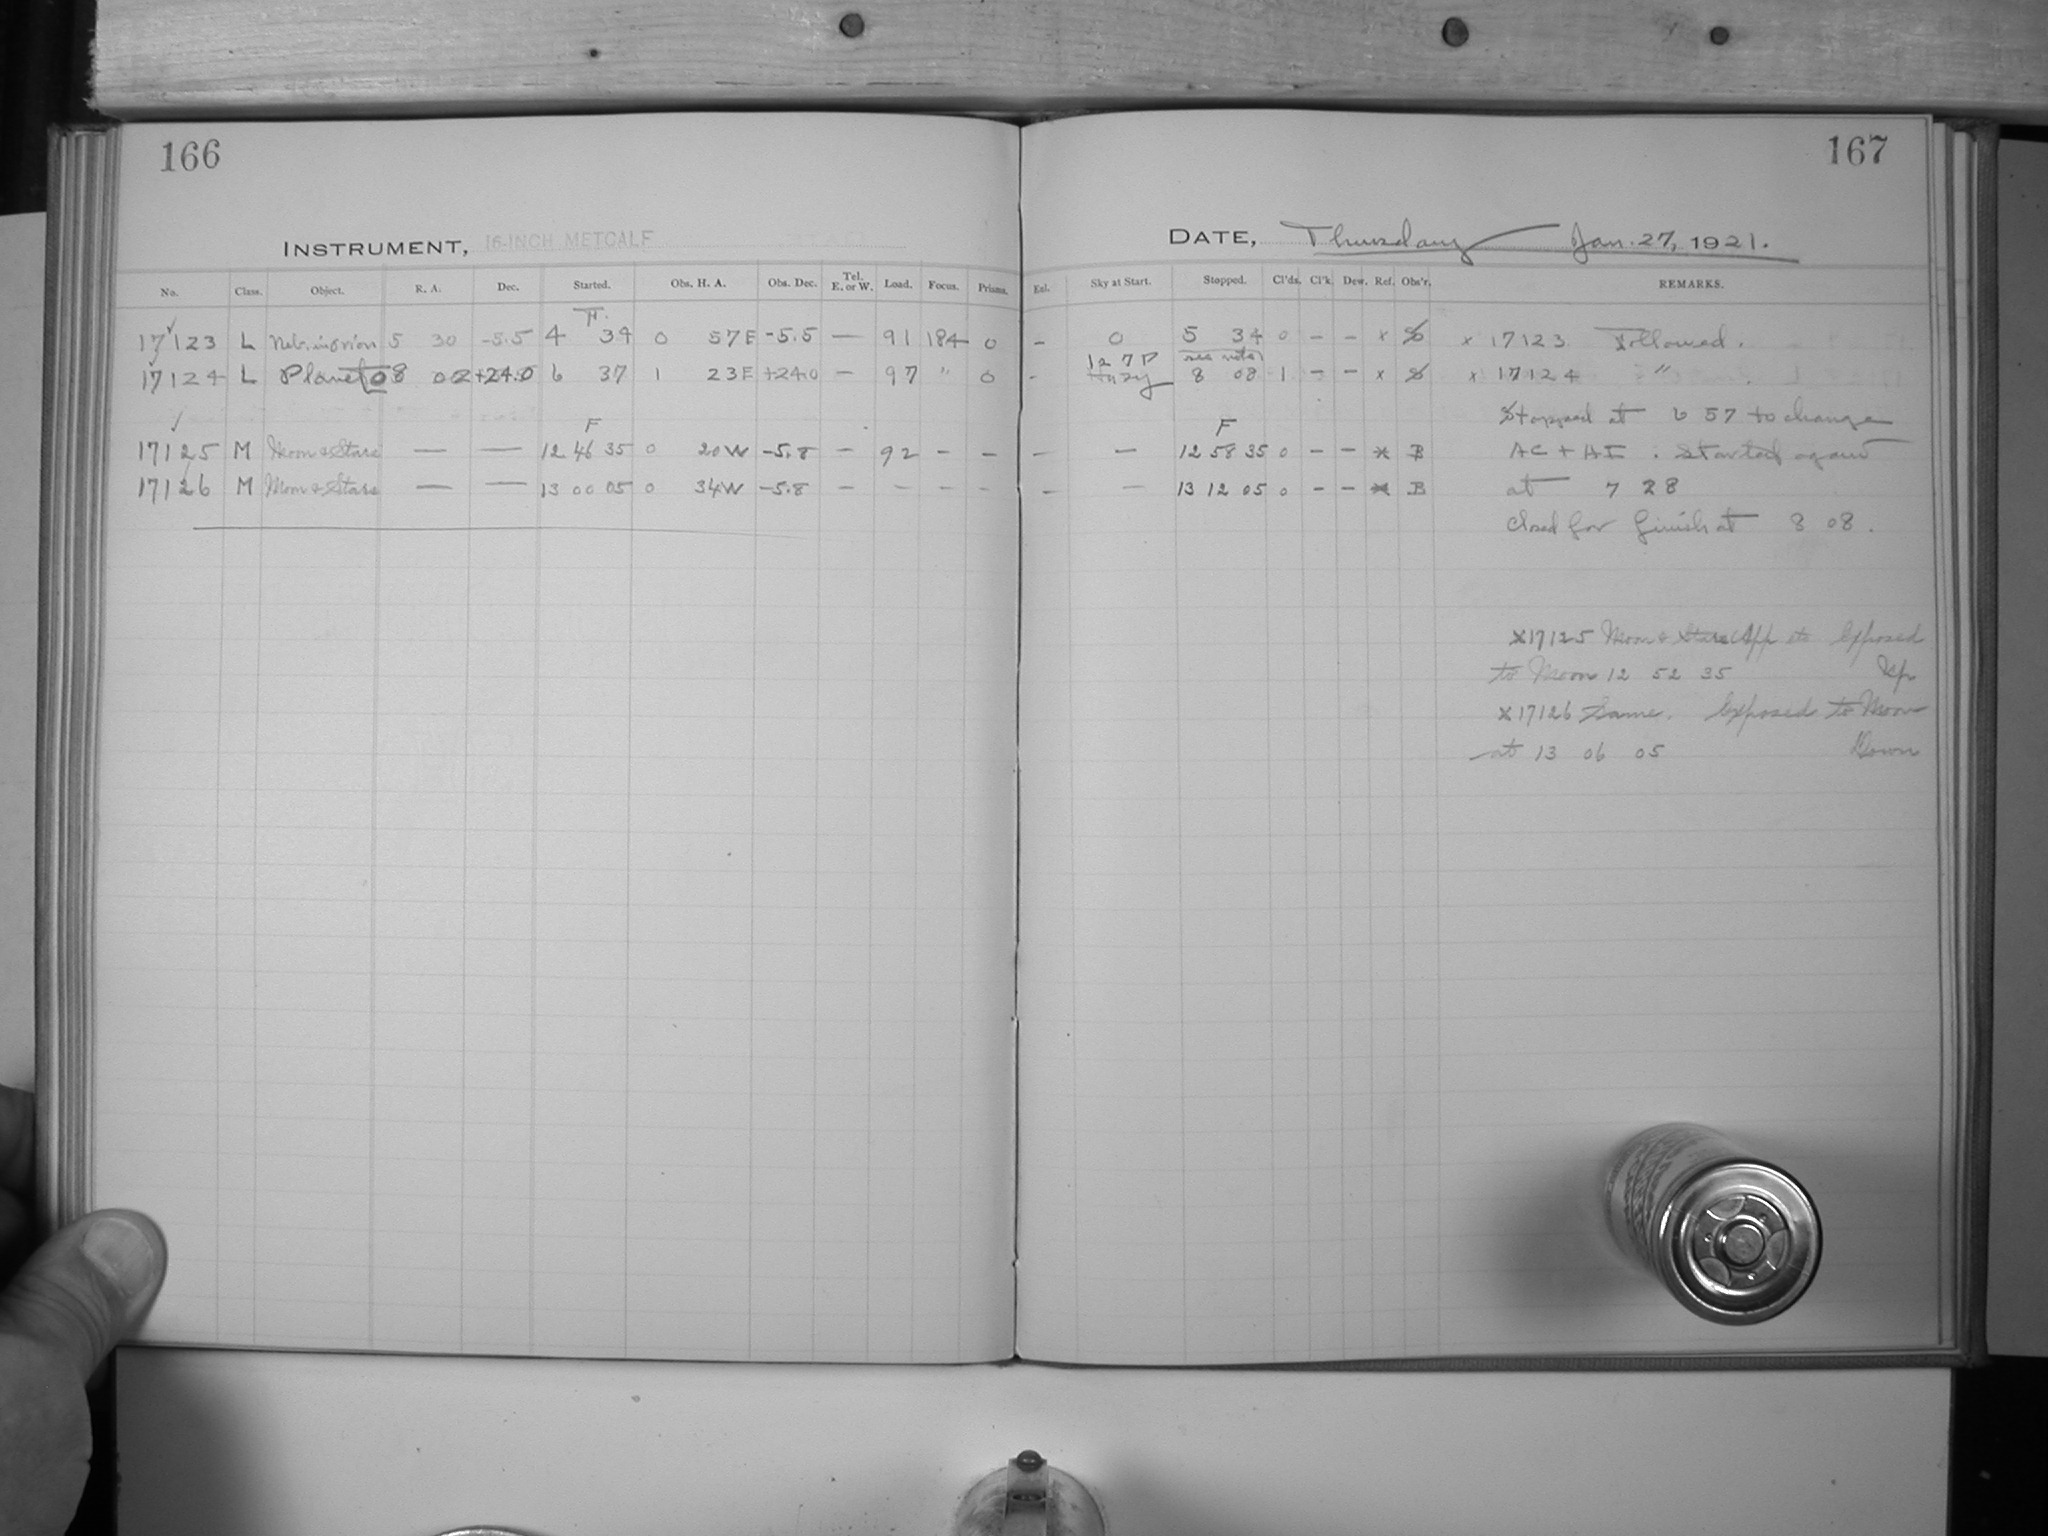 166
167
INSTRUMENT, 16-INCH METCALF
DATE, Thursday Jan. 27, 1921.
No. Class. Object. R. A. Dec. Started. Obs. H. A. Obs. Dec. Tel. E. or W. Load. Focus. Prisms. Enl. Sky at Start. Stopped. Cl'ds. Cl'k. Dew. Ref. Obs'r. REMARKS.
17123 L Neb. in Orion 5 30 -5.5 4 34 0 57E -5.5 — 91 184 0 - 0 5 34 0 - - x x 17123 Followed.
127P see note
17124 L Planet 8 02 +24.0 6 37 1 23E +24.0 — 97 " 0 - Hazy 8 08 1 - - x x 17124 "
Stopped at 6 57 to change
F F
17125 M Moon & Stars — — 12 46 35 0 20W -5.8 - 92 - - - — 12 58 35 0 - - x B AC + AI. Started again
17126 M Moon & Stars — — 13 00 05 0 34W -5.8 - - - - - — 13 12 05 0 - - x B at 7 28
Closed for finish at 8 08.
x17125 Moon & Stars App etc Exposed
to Moon 12 52 35 Up
x17126 Same. Exposed to Moon
at 13 06 05 Down